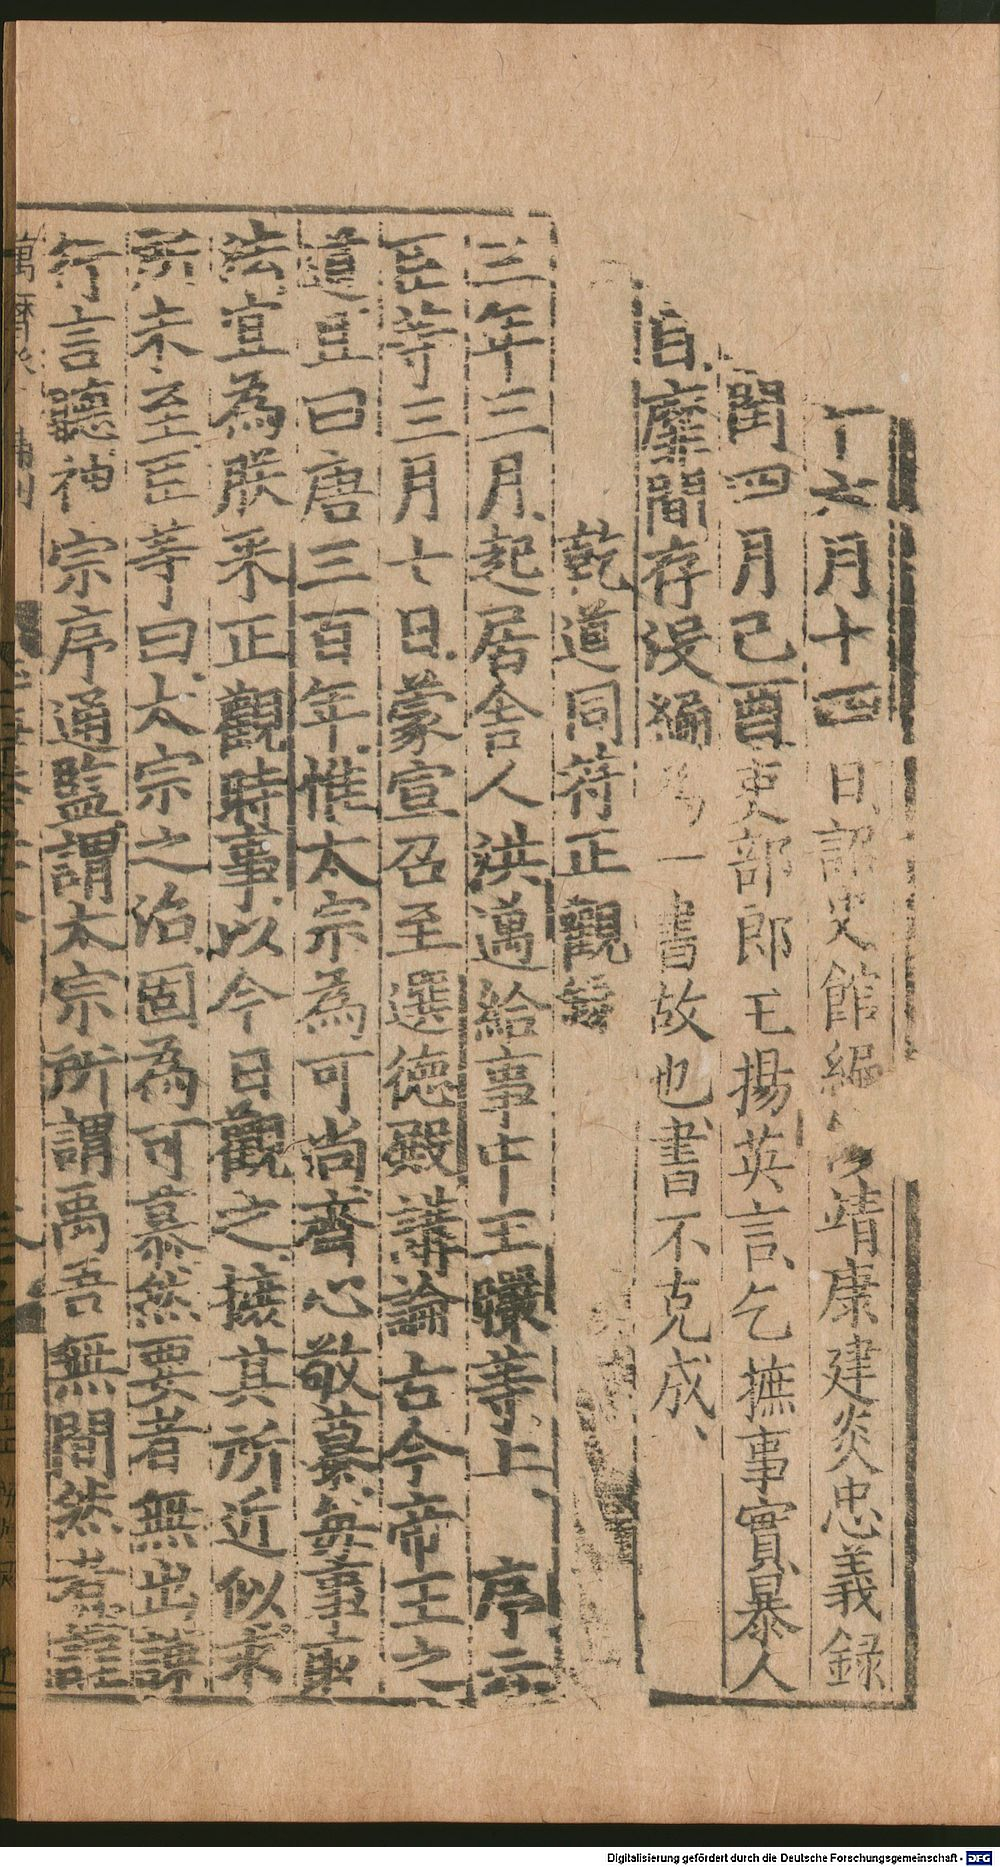 十六月十四日詔史館編 靖康建炎忠義錄
閏四月己酉吏部郎王揚英言乞摭事實暴人
耳目靡間存没編為一書故也書不克成
乾道同符正觀錄
三年三月起居舍人洪邁給事中王曮等上 序云
臣等三月十日蒙宣召至選德殿講論古今帝王之
道且曰唐三百年惟太宗為可尚齊心敬慕每事取
法宜為朕采正觀時事以今日觀之摭其所近似求
所未至臣等曰太宗之治固為可慕然要者無出諫
行言聽神宗序通監謂太宗所謂禹吾無間然者謹
Digitalisierung gefördert durch die Deutsche Forschungsgemeinschaft - DFG